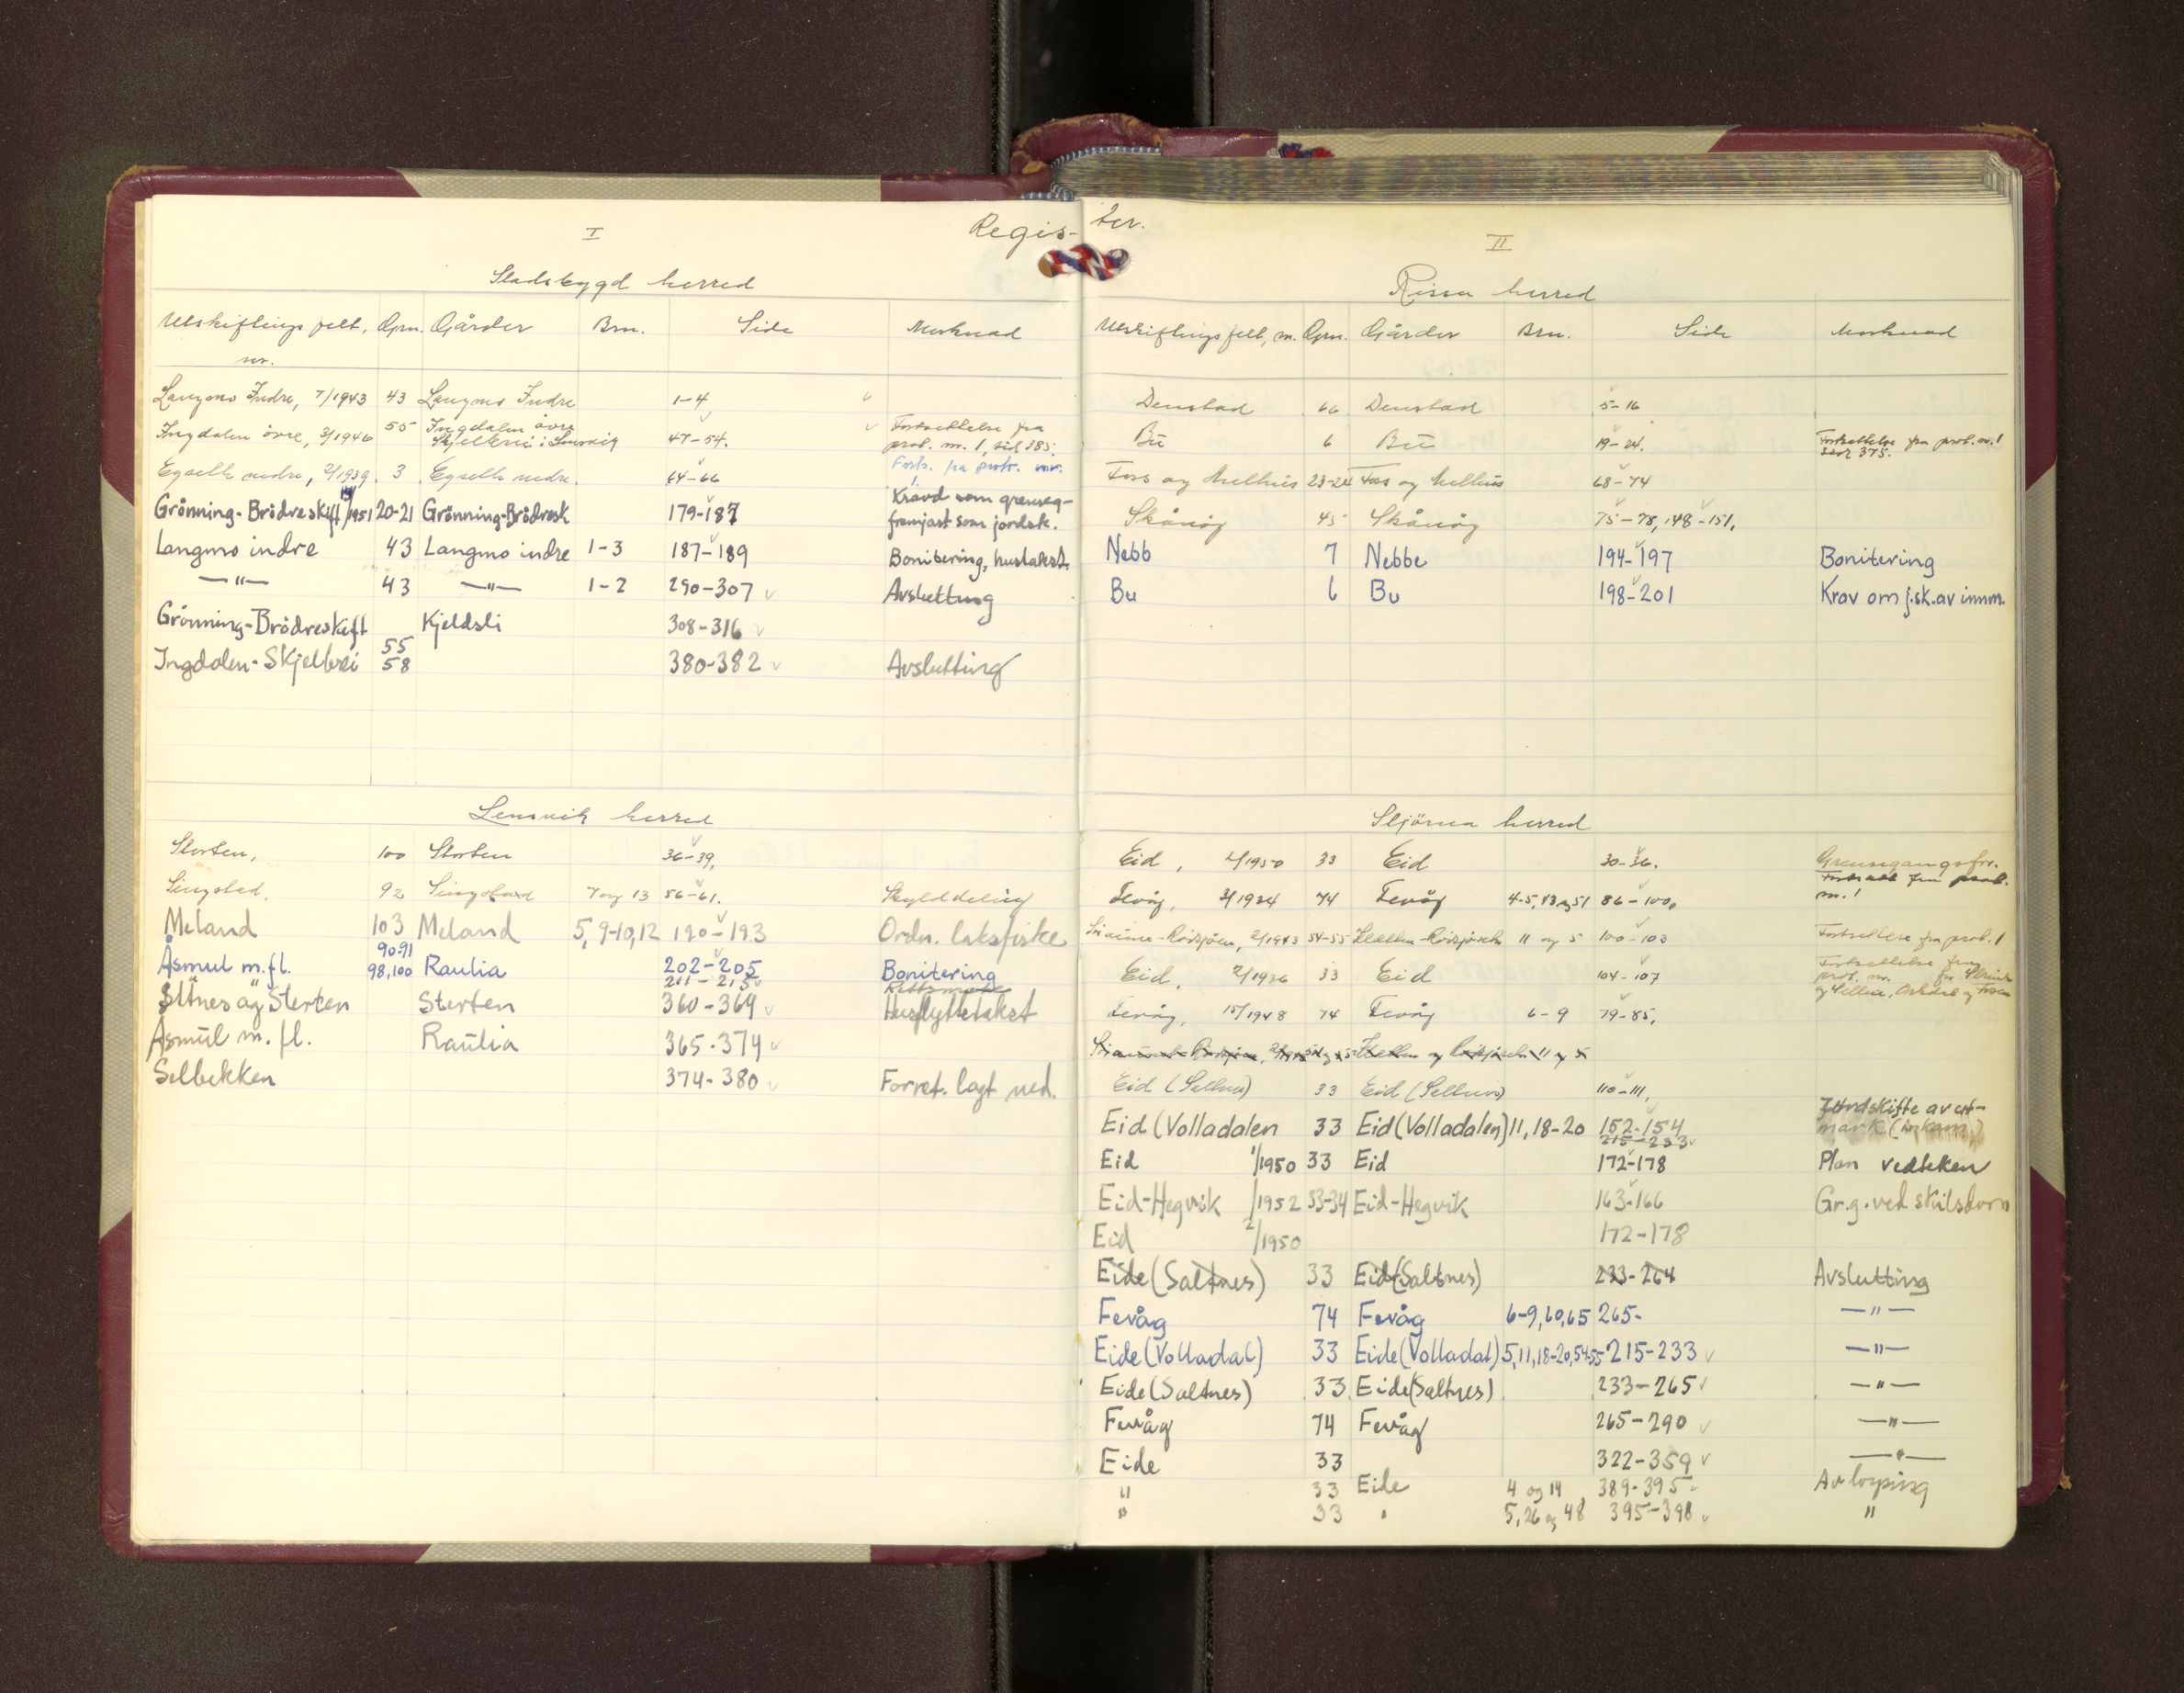 I
Regis-
Stadsbygd herred
Utskiftings felt, nr. Gnr. Gårder Brn. Side Merknad
Langmo Indre, 7/1943 43 Langmo Indre 1-4
Ingdalen övre, 3/1946 55 Ingdalen övre Skjelbrei i Lensvig 47-54. Fortsettelse fra prot. nr. 1, sid 385.
nedre, 2/1939 3 nedre. 64-66 Forts. fra protr. nr. 1.
Grönning-Brödreskift /1951 20-21 Grönning-Brödresk 179-187 Kravd som grenseg- fremjast som jordsk.
Langmo indre 43 Langmo indre 1-3 187-189 Bonitering, hustakst.
—"— 43 —"— 1-2 290-307 Avslutting
Grönning-Brödreskift Kjeldsli 308-316
Ingdalen-Skjelbrei 55 58 380-382 Avslutting
Lensvik herred
Storten, 100 Storten 36-39,
Singstad. 92 Singstad 7 og 13 56-61. Skylddeling
Meland 103 Meland 5, 9-10, 12 190-193 Ordn. laksfiske
Åsmul m.fl. 90-91 98,100 Raulia 202-205 Bonitering
211-215 Rettsmøte
og Sterten Sterten 360-369 Husflyttetakst
Åsmul m. fl. Raulia 365-374
Selbekken 374-380 Forret. lagt ned.
ter.
II
Rissa herred
Utskiftings felt, nr. Gnr. Gårder Brn. Side Merknad
Denstad 66 Denstad 5-16
Bu 6 Bu 19-24. Fortsettelse fra prot. nr. 1 side 375.
Foss og Melhus 23-24 Foss og Melhus 68-74
Skånöy 45 Skånöy 75-78, 148-151,
Nebb 7 Nebbe 194-197 Bonitering
Bu 6 Bu 198-201 Krav om j.sk. av innm.
Stjörna herred
Eid, 2/1950 33 Eid 30-36. Grensegangsforr.
Fevåg, 3/1934 74 Fevåg 4-5, 43 og 51 86-100, Fortsatt fra prot. nr. 1
2/1943 54-55 11 og 5 100-103 Fortsettelse fra prot. 1
Eid, 2/1936 33 Eid 104-107 Fortsettelse fra prot. nr.
Fevåg, 15/1948 74 Fevåg 6-9 79-85,
Eid ( 33 Eid ( 110-111,
Eid (Volladalen 33 Eid (Volladalen) 11, 18-20 152-154 Jordskifte av ut- mark
215-233
Eid 1/1950 33 Eid 172-178 Plan vedteken
Eid-Hegvik /1952 33-34 Eid-Hegvik 163-166 Gr.g. ved skilsdom
Eid 2/1950 172-178
Eide (Saltnes) 33 Eid (Saltnes) 233-264 Avslutting
Fevåg 74 Fevåg 6-9, 60, 65 265- —"—
Eide (Volladal) 33 Eide (Volladal) 5, 11, 18-20, 54-55 215-233 —"—
Eide (Saltnes) 33 Eide (Saltnes) 233-265 —"—
Fevåg 74 Fevåg 265-290 —"—
Eide 33 322-359 —"—
" 33 Eide 4 og 14 389-395 Avløysing
" 33 " 5, 26 og 48 395-398 "